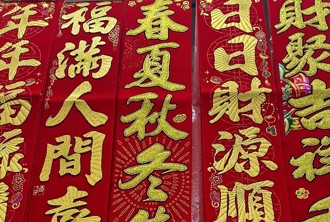 財聚
日日財源順
春夏秋冬
福滿人間喜
年年福